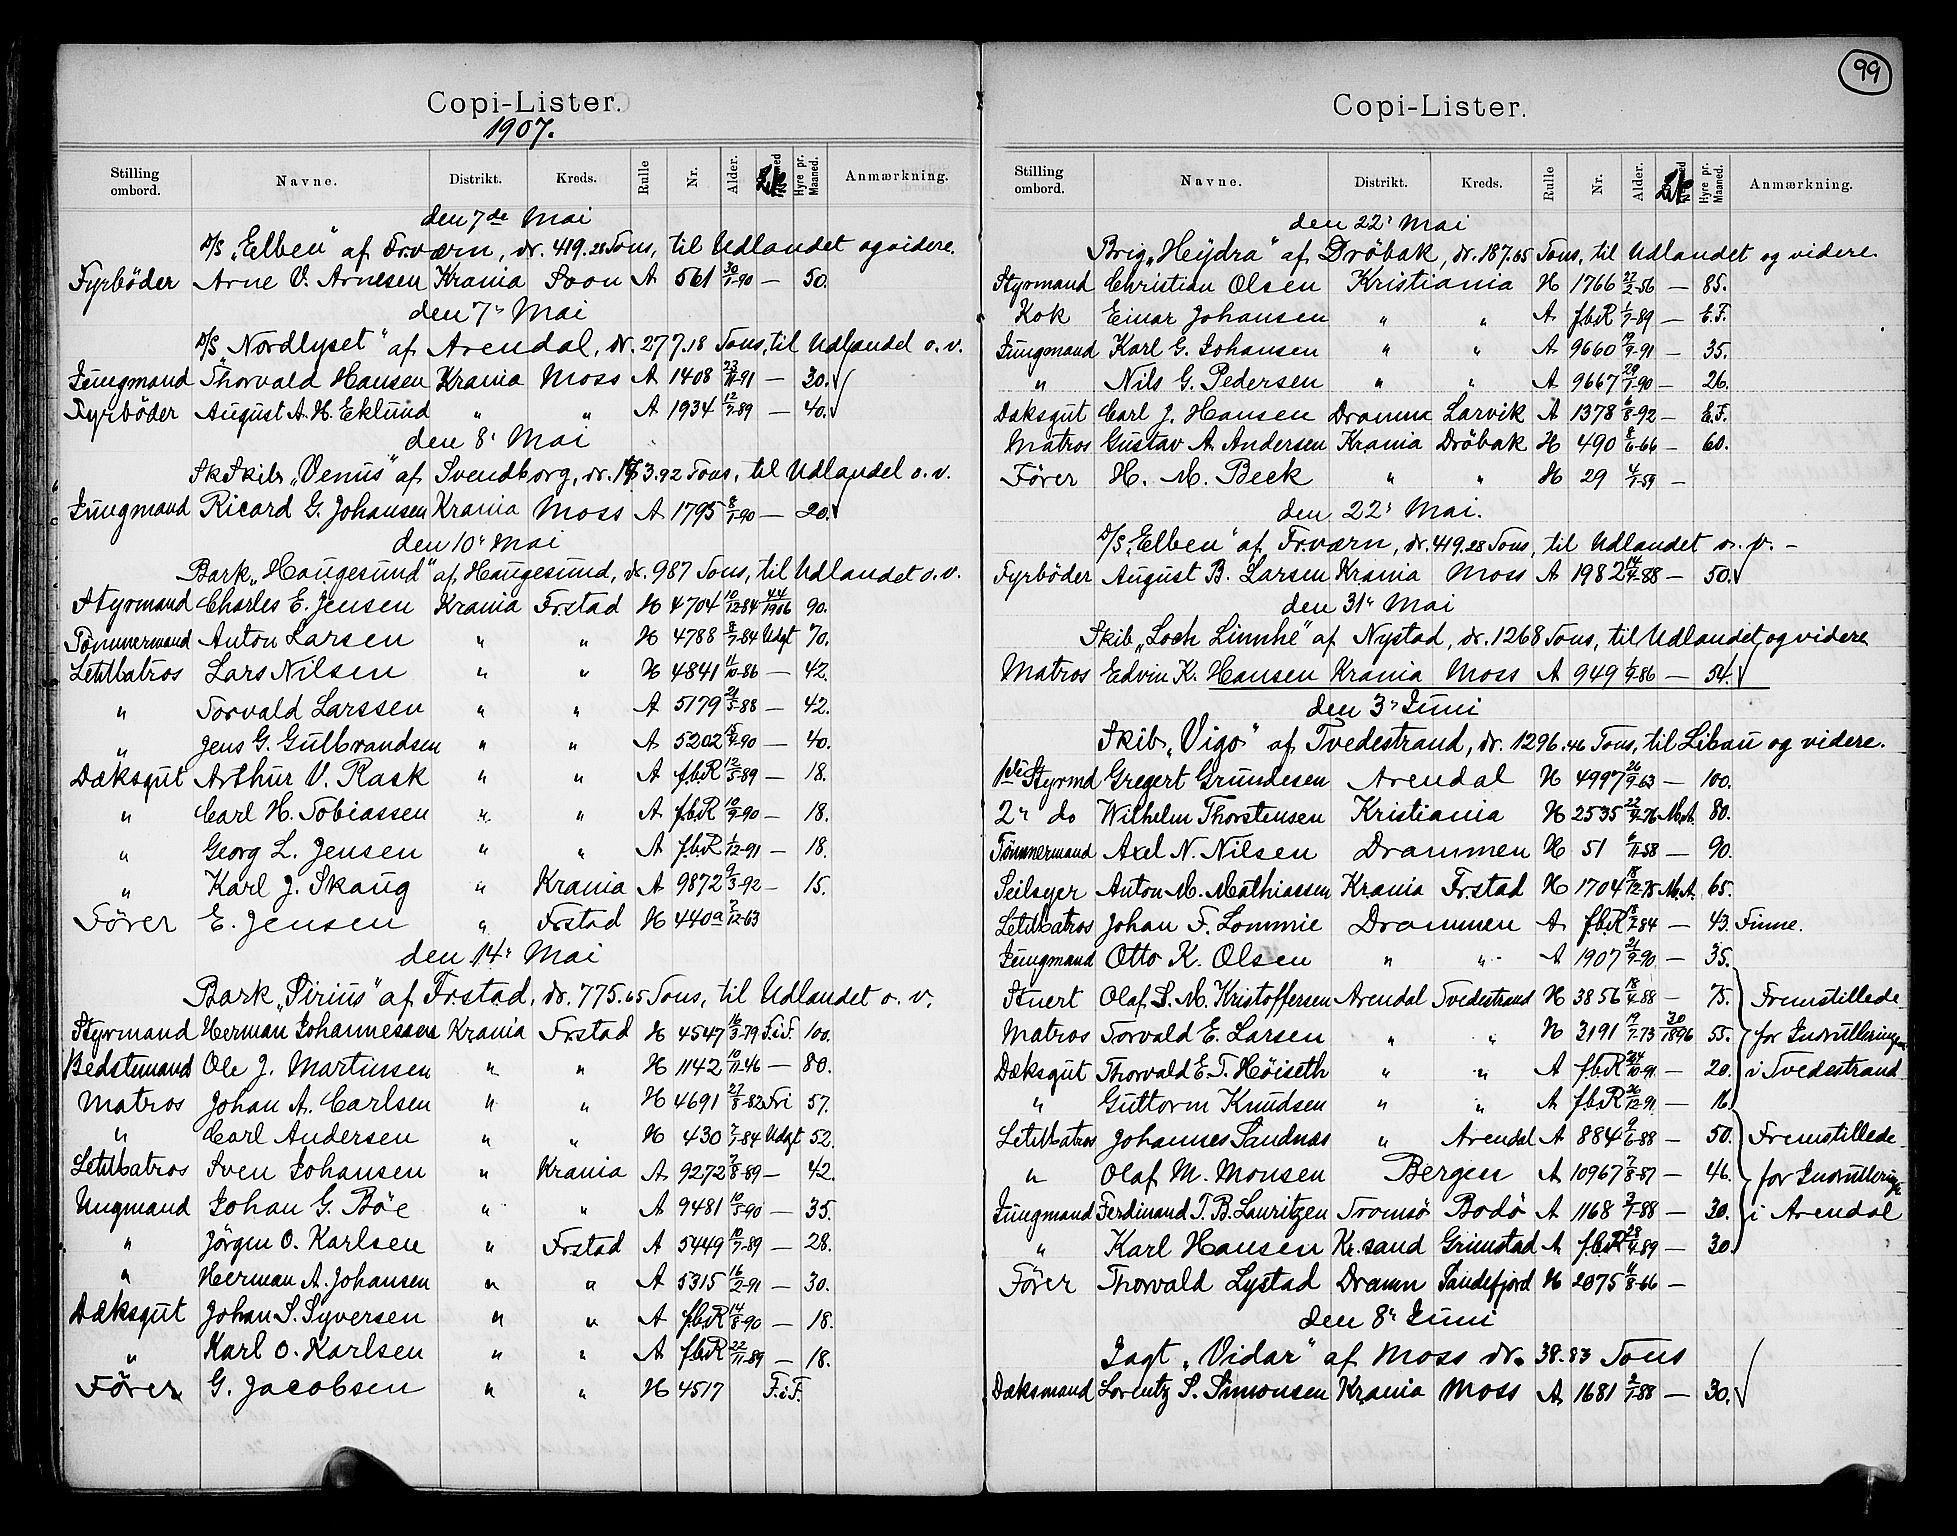 Copi-Lister.
1907.
Stilling ombord. Navne. Distrikt. Kreds. Rulle Nr. Alder. Hyre pr. Maaned. Anmærkning.
den 7de Mai
D/S „Elben“ af Fr.værn, dr. 419.28 Tons, til Udlandet og videre.
Fyrböder Arne V. Arnesen Krania Soon A 561 30/1-90 — 50.
den 7" Mai
D/S „Nordlyset“ af Arendal, dr. 277.18 Tons, til Udlandet o. v.
Jungmand Thorvald Hansen Krania Moss A 1408 23/11-91 — 30.
Fyrböder August A. H. Eklund " " A 1934 12/7-89 — 40.
den 8" Mai
Sk Skib „Venus“ af Svendborg, dr. 153.92 Tons, til Udlandet o. v.
Jungmand Ricard G. Johansen Krania Moss A 1795 8/1-90 — 20.
den 10" Mai
Bark „Haugesund“ af Haugesund, dr. 987 Tons, til Udlandet o. v.
Styrmand Charles E. Jensen Krania Frstad H 4704 10/12-84 44/1906 90.
Tømmermand Anton Larsen " " H 4788 8/7-84 Udgt 70.
LetMatros Lars Nilsen " " H 4841 11/10-86 — 42.
" Torvald Larssen " " A 5179 21/5-88 — 42.
" Jens G. Gulbrandsen " " A 5202 15/9-90 — 40.
Dæksgut Arthur V. Rask " " A fbR 12/5-89 — 18.
" Carl H. Tobiassen " " A fbR 10/9-90 — 18.
" Georg L. Jensen " " A fbR 1/12-91 — 18.
" Karl J. Skaug " Krania A 9872 9/3-92 — 15.
Förer E. Jensen " Frstad H 440a 7/12-63
den 14" Mai
Bark „Sirius“ af Frstad, dr. 775.65 Tons, til Udlandet o. v.
Styrmand Herman Johannessen Krania Frstad H 4547 16/3-79 F.i.F. 100.
Bedstemand Ole J. Martinsen " " H 1142 10/11-46 — 80.
Matros Johan A. Carlsen " " H 4691 27/8-82 Fri 57.
" Carl Andersen " " H 430 7/1-84 Udgt 52.
LetMatros Sven Johansen " Krania A 9272 7/8-89 — 42.
Ungmand Johan G. Böe " " A 9481 10/5-90 — 35.
" Jörgen O. Karlsen " Frstad A 5449 10/7-89 — 28.
" Herman A. Johansen " " A 5315 16/2-91 — 30.
Dæksgut Johan S. Syversen " " A fbR 14/8-90 — 18.
" Karl O. Karlsen " " A fbR 22/11-89 — 18.
Förer G. Jacobsen " " H 4517 F.i.F.
99
Copi-Lister.
Stilling ombord. Navne. Distrikt. Kreds. Rulle Nr. Alder. Hyre pr. Maaned. Anmærkning.
den 22" Mai
Brig „Heydra“ af Dröbak, dr. 187.65 Tons, til Udlandet og videre.
Styrmand Christian Olsen Kristiania H 1766 22/2-56 — 85.
Kok Einar Johansen " " A fbR 1/7-89 — E.F.
Jungmand Karl G. Johansen " " A 9660 19/9-91 — 35.
" Nils G. Pedersen " " A 9667 29/1-90 — 26.
Daksgut Carl J. Hansen Dramm Larvik A 1378 6/8-92 — E.F.
Matros Gustav A. Andersen Krania Dröbak H 490 8/6-66 — 60.
Förer H. M. Beck " " H 29 4/1-59 —
den 22" Mai.
D/S „Elben“ af Fr.værn, dr. 419.28 Tons, til Udlandet o. v. —
Fyrböder August B. Larsen Krania Moss A 1982 14/9-88 — 50.
den 31" Mai
Skib „Loch Linnhe“ af Nystad, dr. 1268 Tons, til Udlandet og videre
Matros Edvin K. Hansen Krania Moss A 949 1/9-86 — 54.
den 3" Juni
Skib „Vigo“ af Tvedestrand, dr. 1296.46 Tons, til Libau og videre.
1ste Styrmd Gregert Grundesen Arendal H 4997 26/9-63 — 100.
2" do Wilhelm Thorstensen Kristiania H 2535 22/9-76 M.A. 80.
Tømmermand Axel N. Nilsen Drammen H 51 6/11-58 — 90.
Seilsyer Anton M. Mathiassen Krania Frstad H 1704 18/12-75 M.A. 65.
LetMatros Johan F. Lommie Drammen A fbR 18/7-84 — 43. Finne.
Jungmand Otto K. Olsen " " A 1907 21/9-90 — 35.
Stuert Olaf S. M. Kristoffersen Arendal Tvedestrand H 3856 18/4-88 — 75. Fremstillede
Matros Torvald E. Larsen " " H 3191 19/7-73 30/1896 55. for Indrulleringen
Dæksgut Thorvald E. T. Höiseth " " A fbR 24/10-91 — 20. i Tvedestrand
" Guttorm Knudsen " " A fbR 26/12-91 — 16.
LetMatros Johannes Sandnæs " Arendal A 884 9/6-88 — 50. Fremstillede
" Olaf M. Monsen Bergen A 10967 7/8-87 — 46. for Indrullering
Jungmand Ferdinand T. B. Lauritzen Tromsö Bodö A 1168 3/7-88 — 30. i Arendal
" Karl Hansen Kr.sand Grimstad A fbR 28/4-89 — 30.
Förer Thorvald Lystad Dramn Sandefjord H 2075 11/8-66 —
den 8" Juni
Jagt „Vidar“ af Moss dr. 38.83 Tons
Dæksmand Lorentz S. Simonsen Krania Moss A 1681 2/1-88 — 30.